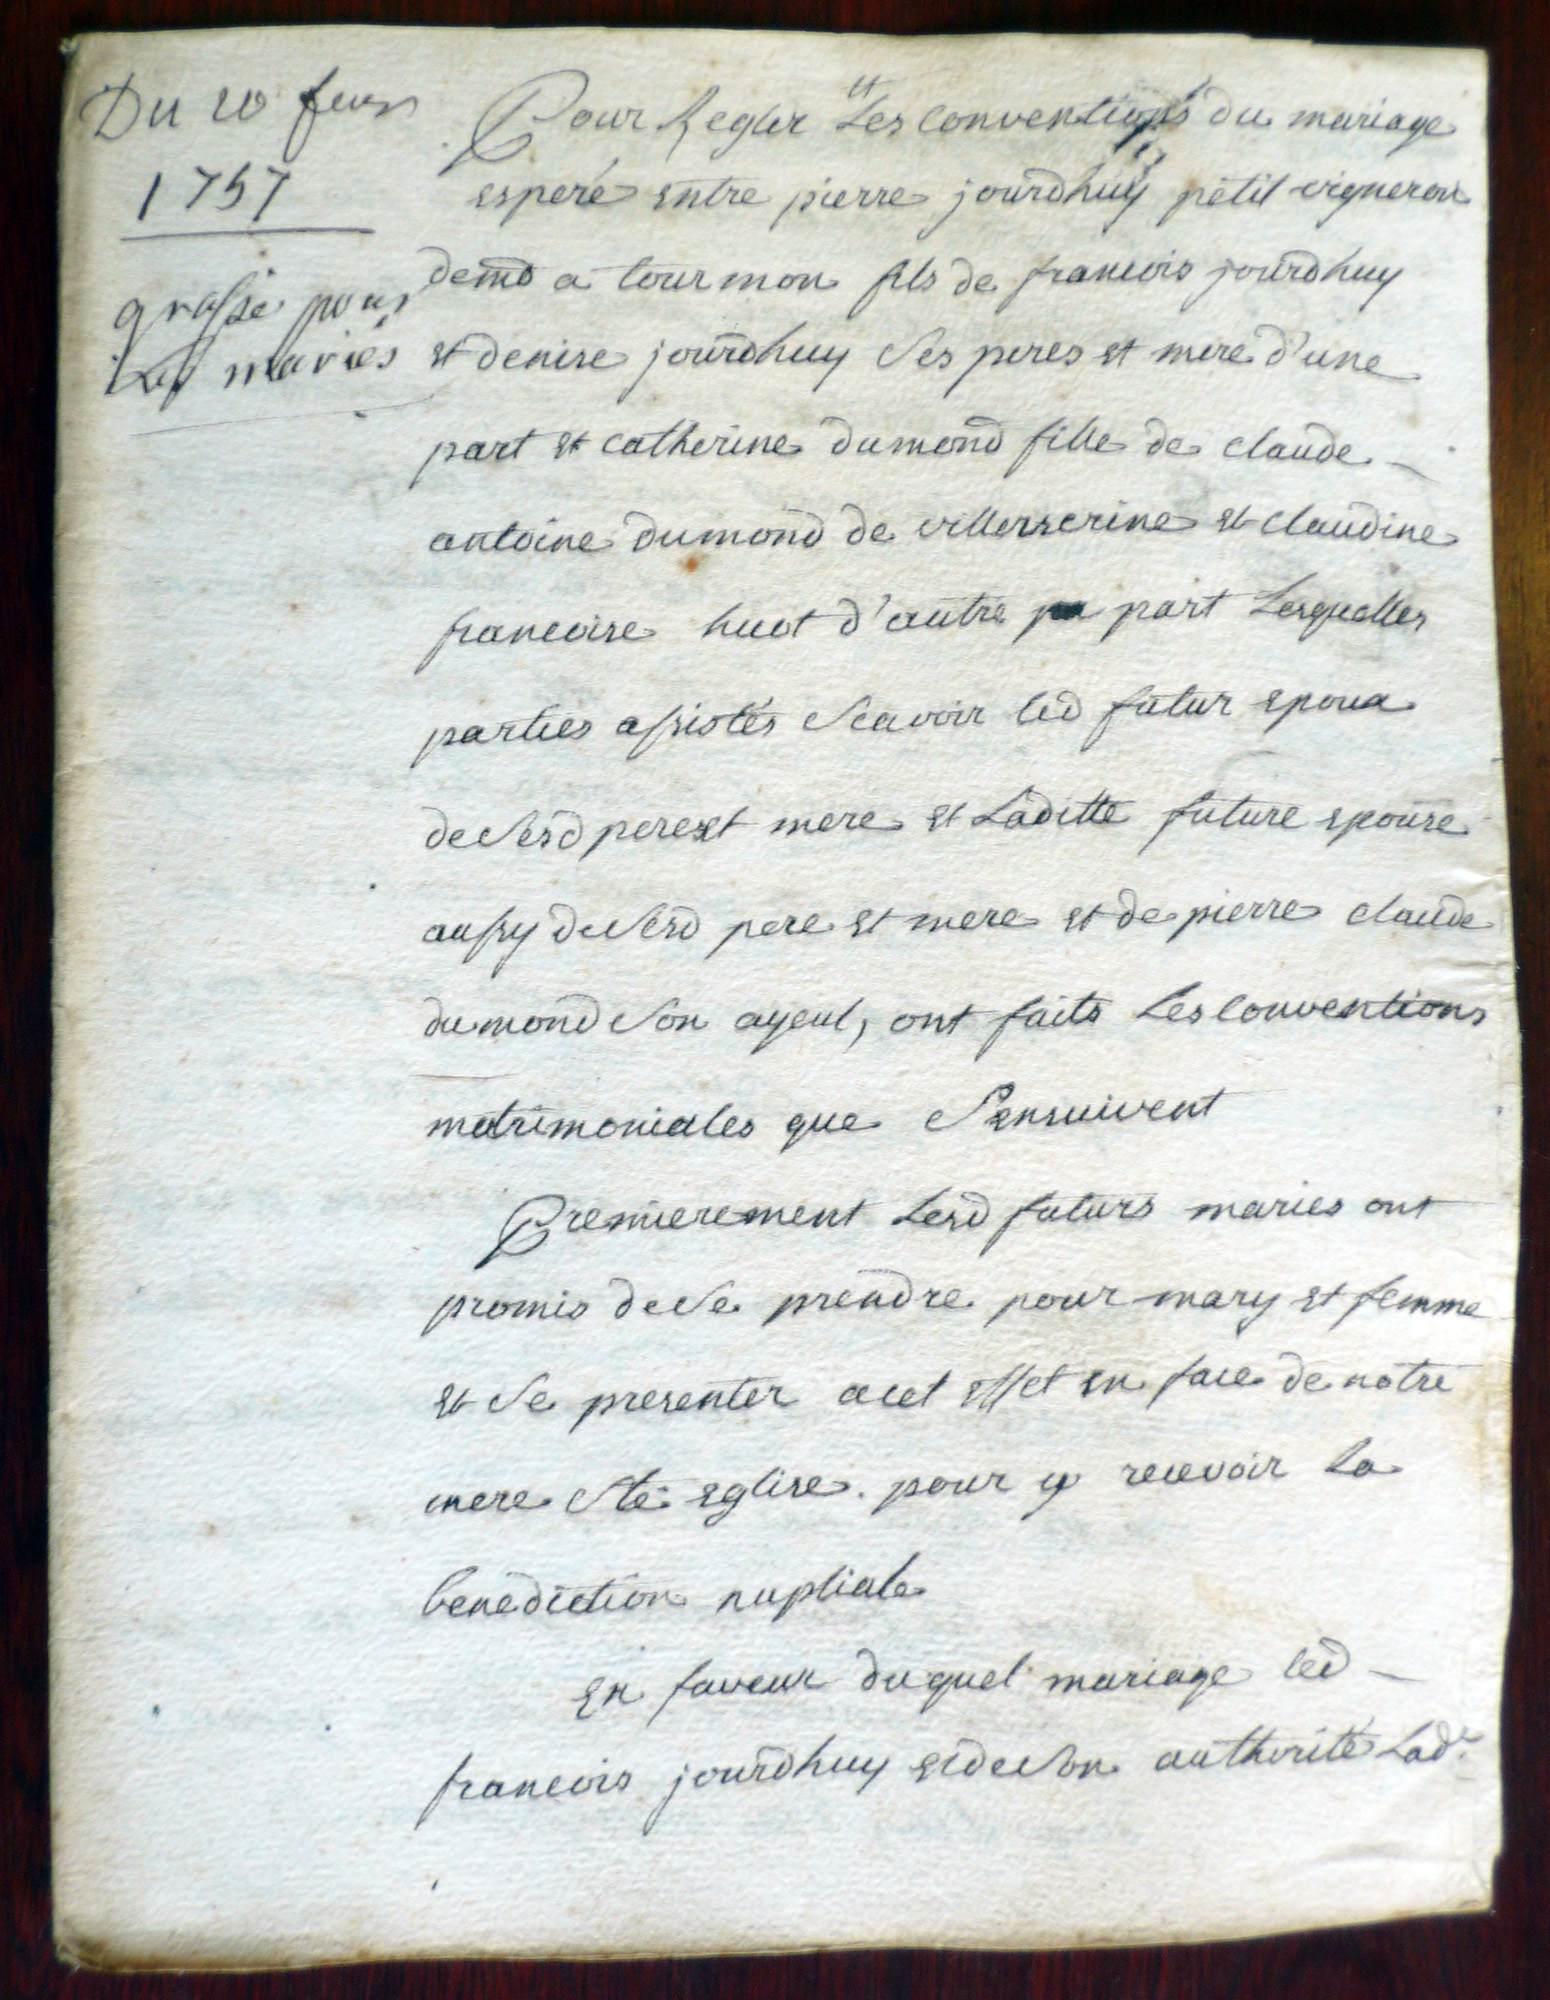 Du 20 fevr
1757
grosse pour
les mariés
Pour Regler Les conventions du mariage
esperé entre pierre jourdhuy petit vigneron
demt a tourmon fils de francois jourdhuy
et denise jourdhuy Ses peres et mere d'une
part et catherine dumond fille de claude
antoine dumond de villerserine et claudine
francoise huot d'autre part Lesquelles
parties assistés Scavoir led futur epoux
de Sesd pere et mere et Laditte future epouse
aussy de Sesd pere et mere et de pierre claude
dumond Son ayeul, ont faits Les conventions
matrimoniales que Sensuivent
Premierement Lesd futurs mariés ont
promis de Se prendre pour mary et femme
et Se presenter acet effet en face de notre
mere Ste eglise pour y recevoir La
benediction nuptiale
En faveur duquel mariage led
francois jourdhuy et de Son authorité Lade